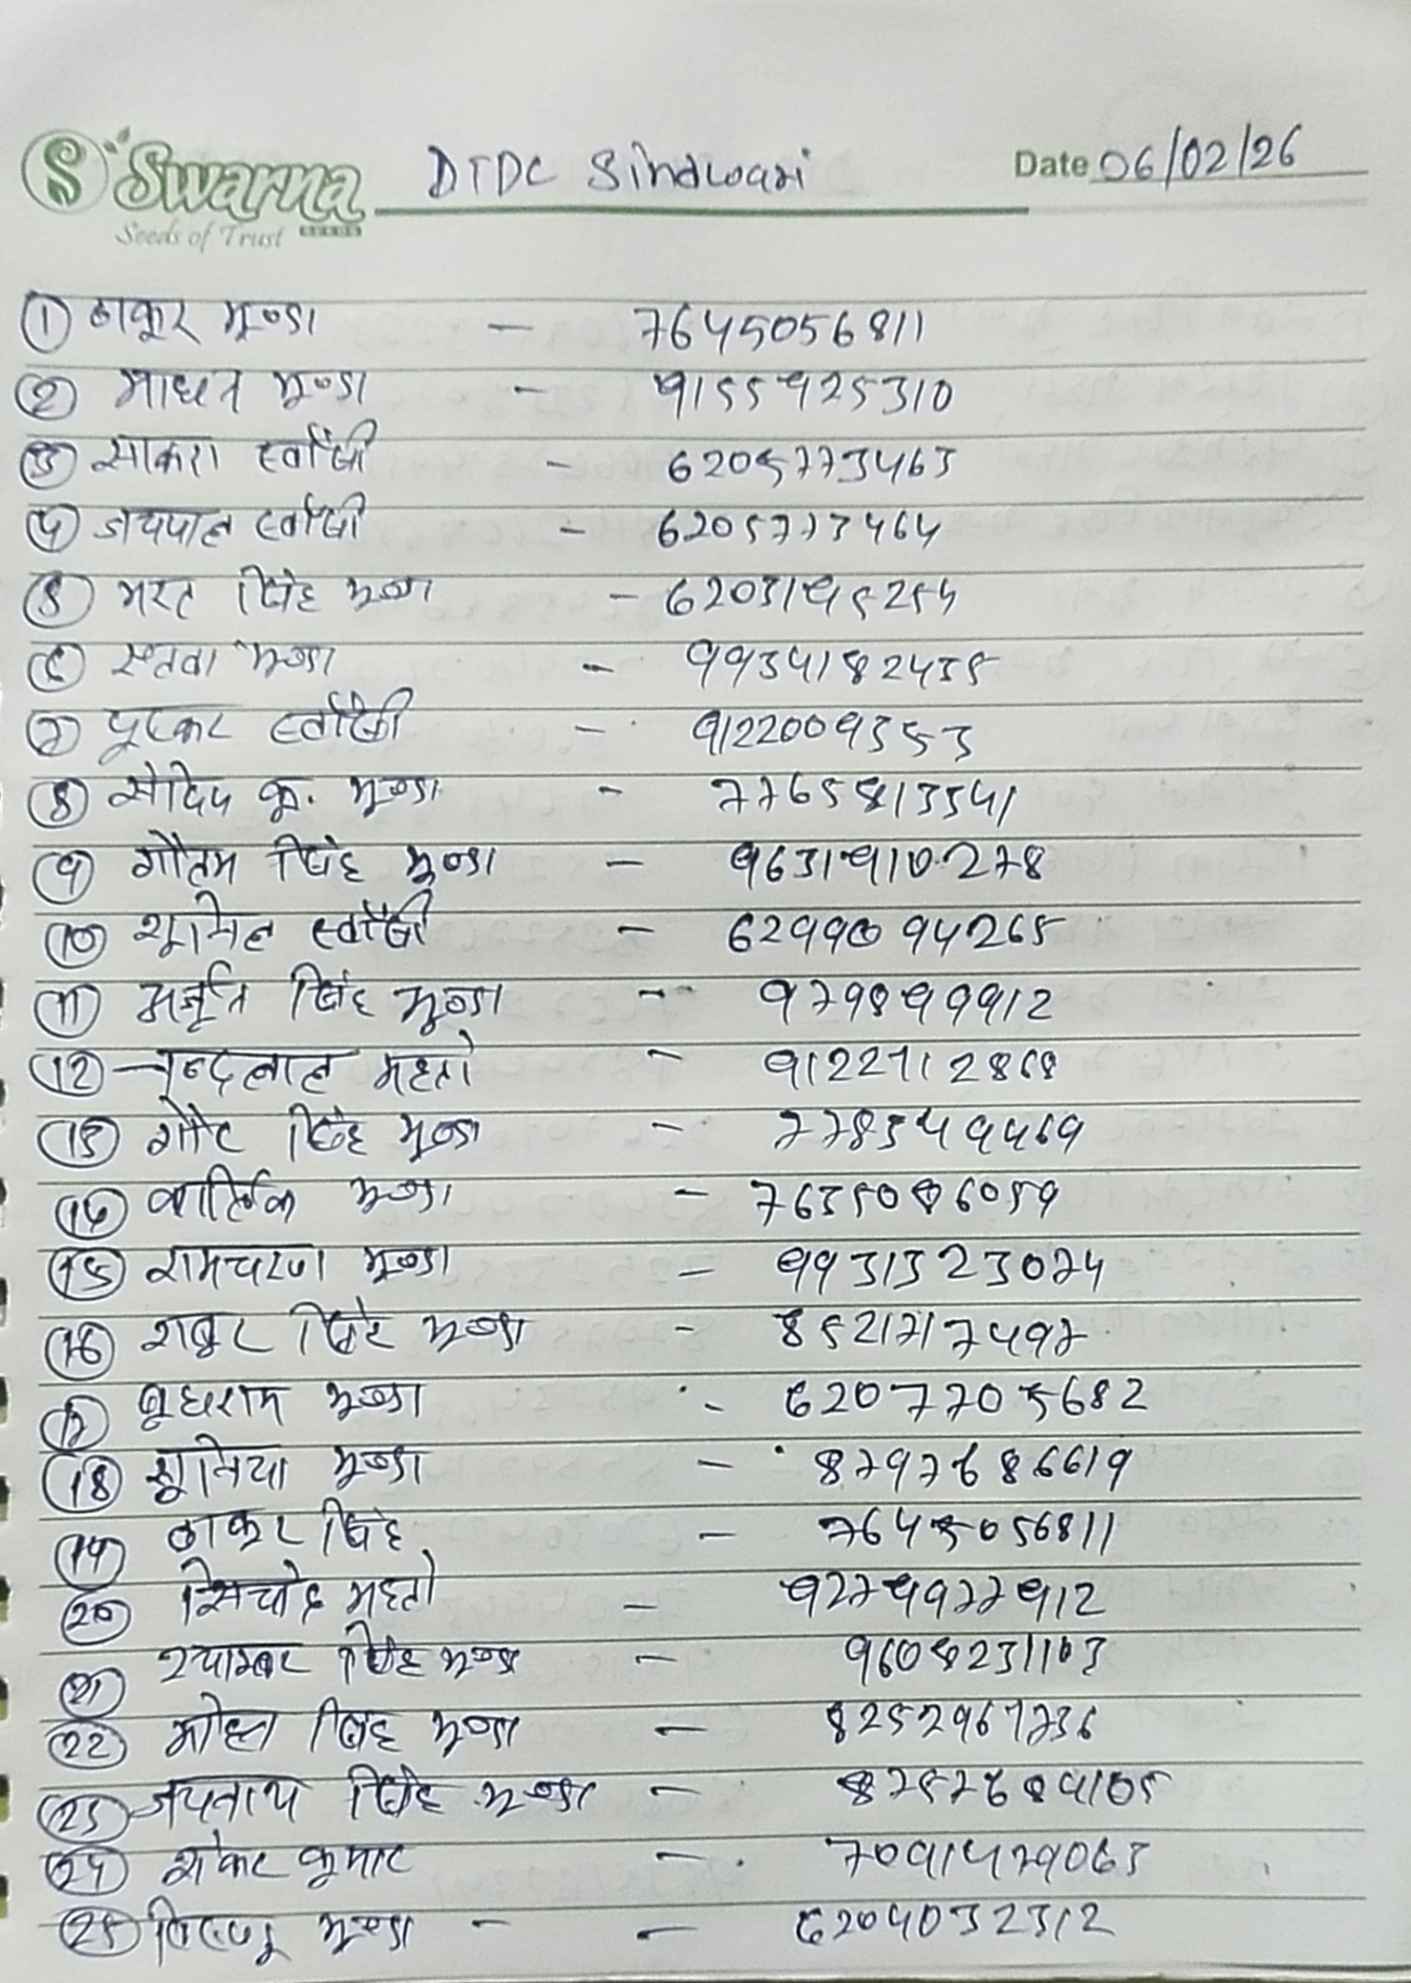 Swarna DTDC Sindwari Date 06/02/26
Seeds of Trust SEEDS
① ठाकुर मुण्डा - 7645056811
② माधव मुण्डा - 9155925310
③ साकरा स्वाँसी - 6205773463
④ जयपाल स्वाँसी - 6205773464
⑤ भरत सिंह मुण्डा - 6203195254
⑥ मुण्डा - 9934182435
⑦ स्वाँसी - 9122009353
⑧ कु. मुण्डा - 7765813541
⑨ गौतम सिंह मुण्डा - 9631910278
⑩ स्वाँसी - 6299094265
⑪ अर्जुन सिंह मुण्डा - 979899912
⑫ नन्दलाल महतो - 9122712868
⑬ गौर सिंह मुण्डा - 7783549469
⑭ कार्तिक मुण्डा - 7635086059
⑮ रामचरण मुण्डा - 9931323074
⑯ सिंह मुण्डा - 8521717497
⑰ बुधराम मुण्डा - 6207705682
⑱ मुण्डा - 8797686619
⑲ ठाकुर सिंह - 7645056811
⑳ महतो - 9279977912
㉑ सिंह मुण्डा - 9608231103
㉒ सिंह मुण्डा - 8252967736
㉓ जयनाथ सिंह मुण्डा -
㉔ शंकर कुमार - 7091479063
㉕ मुण्डा - - 6204032312